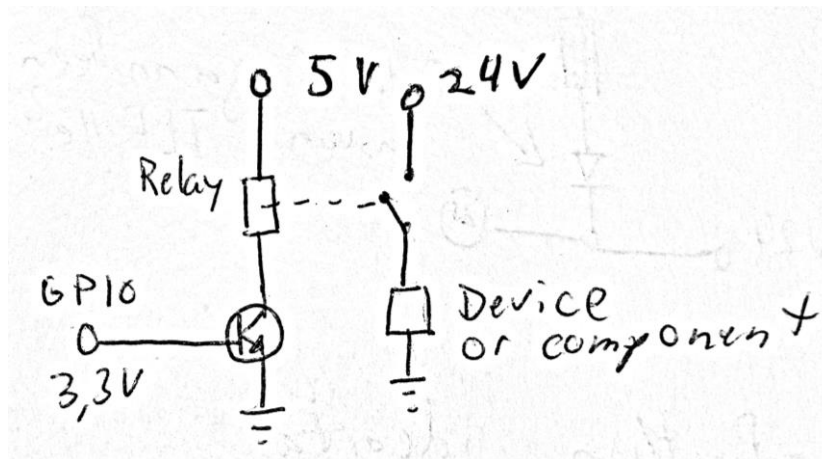 5V
24V
Relay
GPIO
3,3V
Device
or component